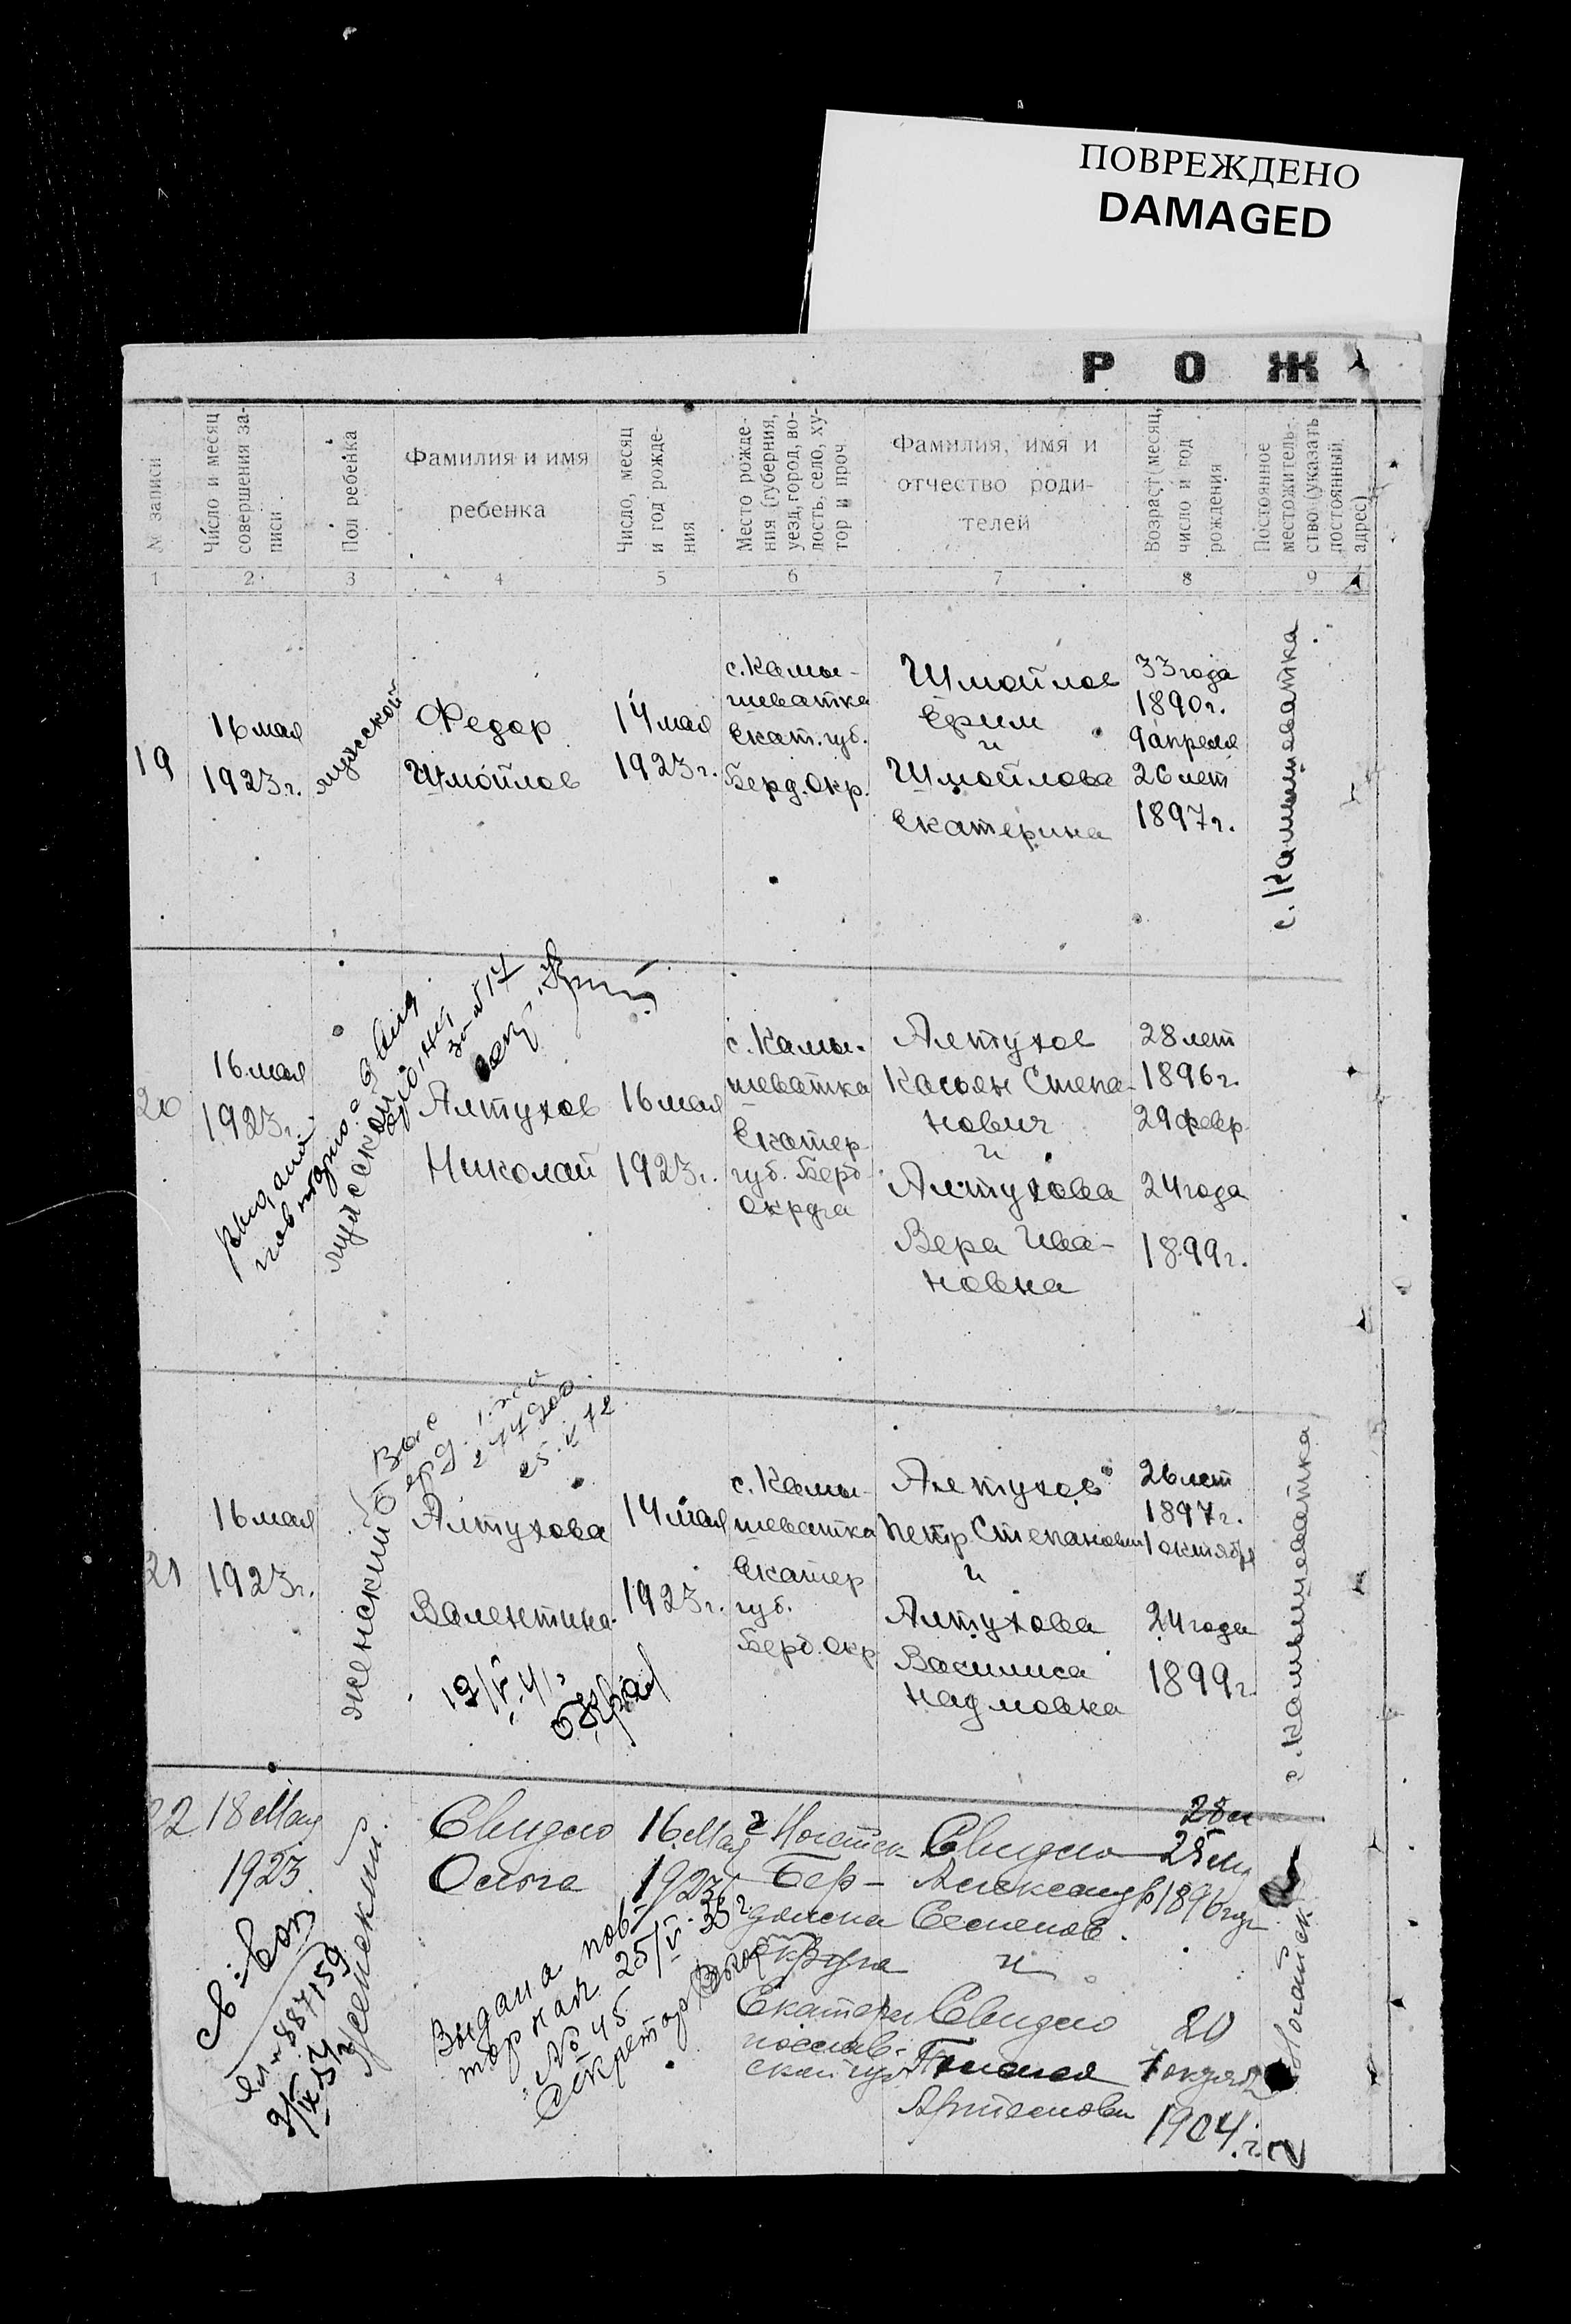 ПОВРЕЖДЕНО
DAMAGED
РОЖ
№ записи
Число и месяц
совершения за-
писи
Пол ребенка
Фамилия и имя
ребенка
Число, месяц
и год рожде-
ния
Место рожде-
ния (губерния,
уезд, город, во-
лость, село, ху-
тор и проч
Фамилия, имя и
отчество роди-
телей
Возраст (месяц,
число и год
рождения
Постоянное
местожитель-
ство (указать
постоянный
адрес)
1 2 3 4 5 6 7 8 9
19
16 мая
1923 г.
мужской
Федор
Шмойлов
14 мая
1923 г.
с. Камы-
шеватка
Екат. губ.
Берд. Окр.
Шмойлов
Ефим
и
Шмойлова
Екатерина
33 года
1890 г.
9 апреля
26 лет
1897 г.
с. Камышеватка
20
16 мая
1923 г.
мужской
за № 17
Алтухов
Николай
16 мая
1923 г.
с. Камы-
шеватка
Екатер
губ. Берд
Округа
Алтухов
Касьян Степа-
нович
и
Алтухова
Вера Ива-
новна
28 лет
1896 г.
29 февр.
24 года
1899 г.
21
16 мая
1923 г.
женский
Алтухова
Валентина
19/V 41
14 мая
1923 г.
с. Камы-
шеватка
Екатер
губ.
Берд. Окр
Алтухов
Петр Степанович
и
Алтухова
Василиса
Наумовна
26 лет
1897 г.
1 октября
24 года
1899 г.
с. Камышеватка
22
18 Мая
1923
Женский
Свидло
Ольга
Выдана пов-
тор
25/V 35 г.
№ 45
Секретар
16 Мая
1923
г Ногайск
Бер-
дянска
округа
Екатери
нослав-
ской губ
Свидло
Александр
Семенов.
и
Свидло
Артемовн
25
1896 год
20
1904 г.
Ногайск